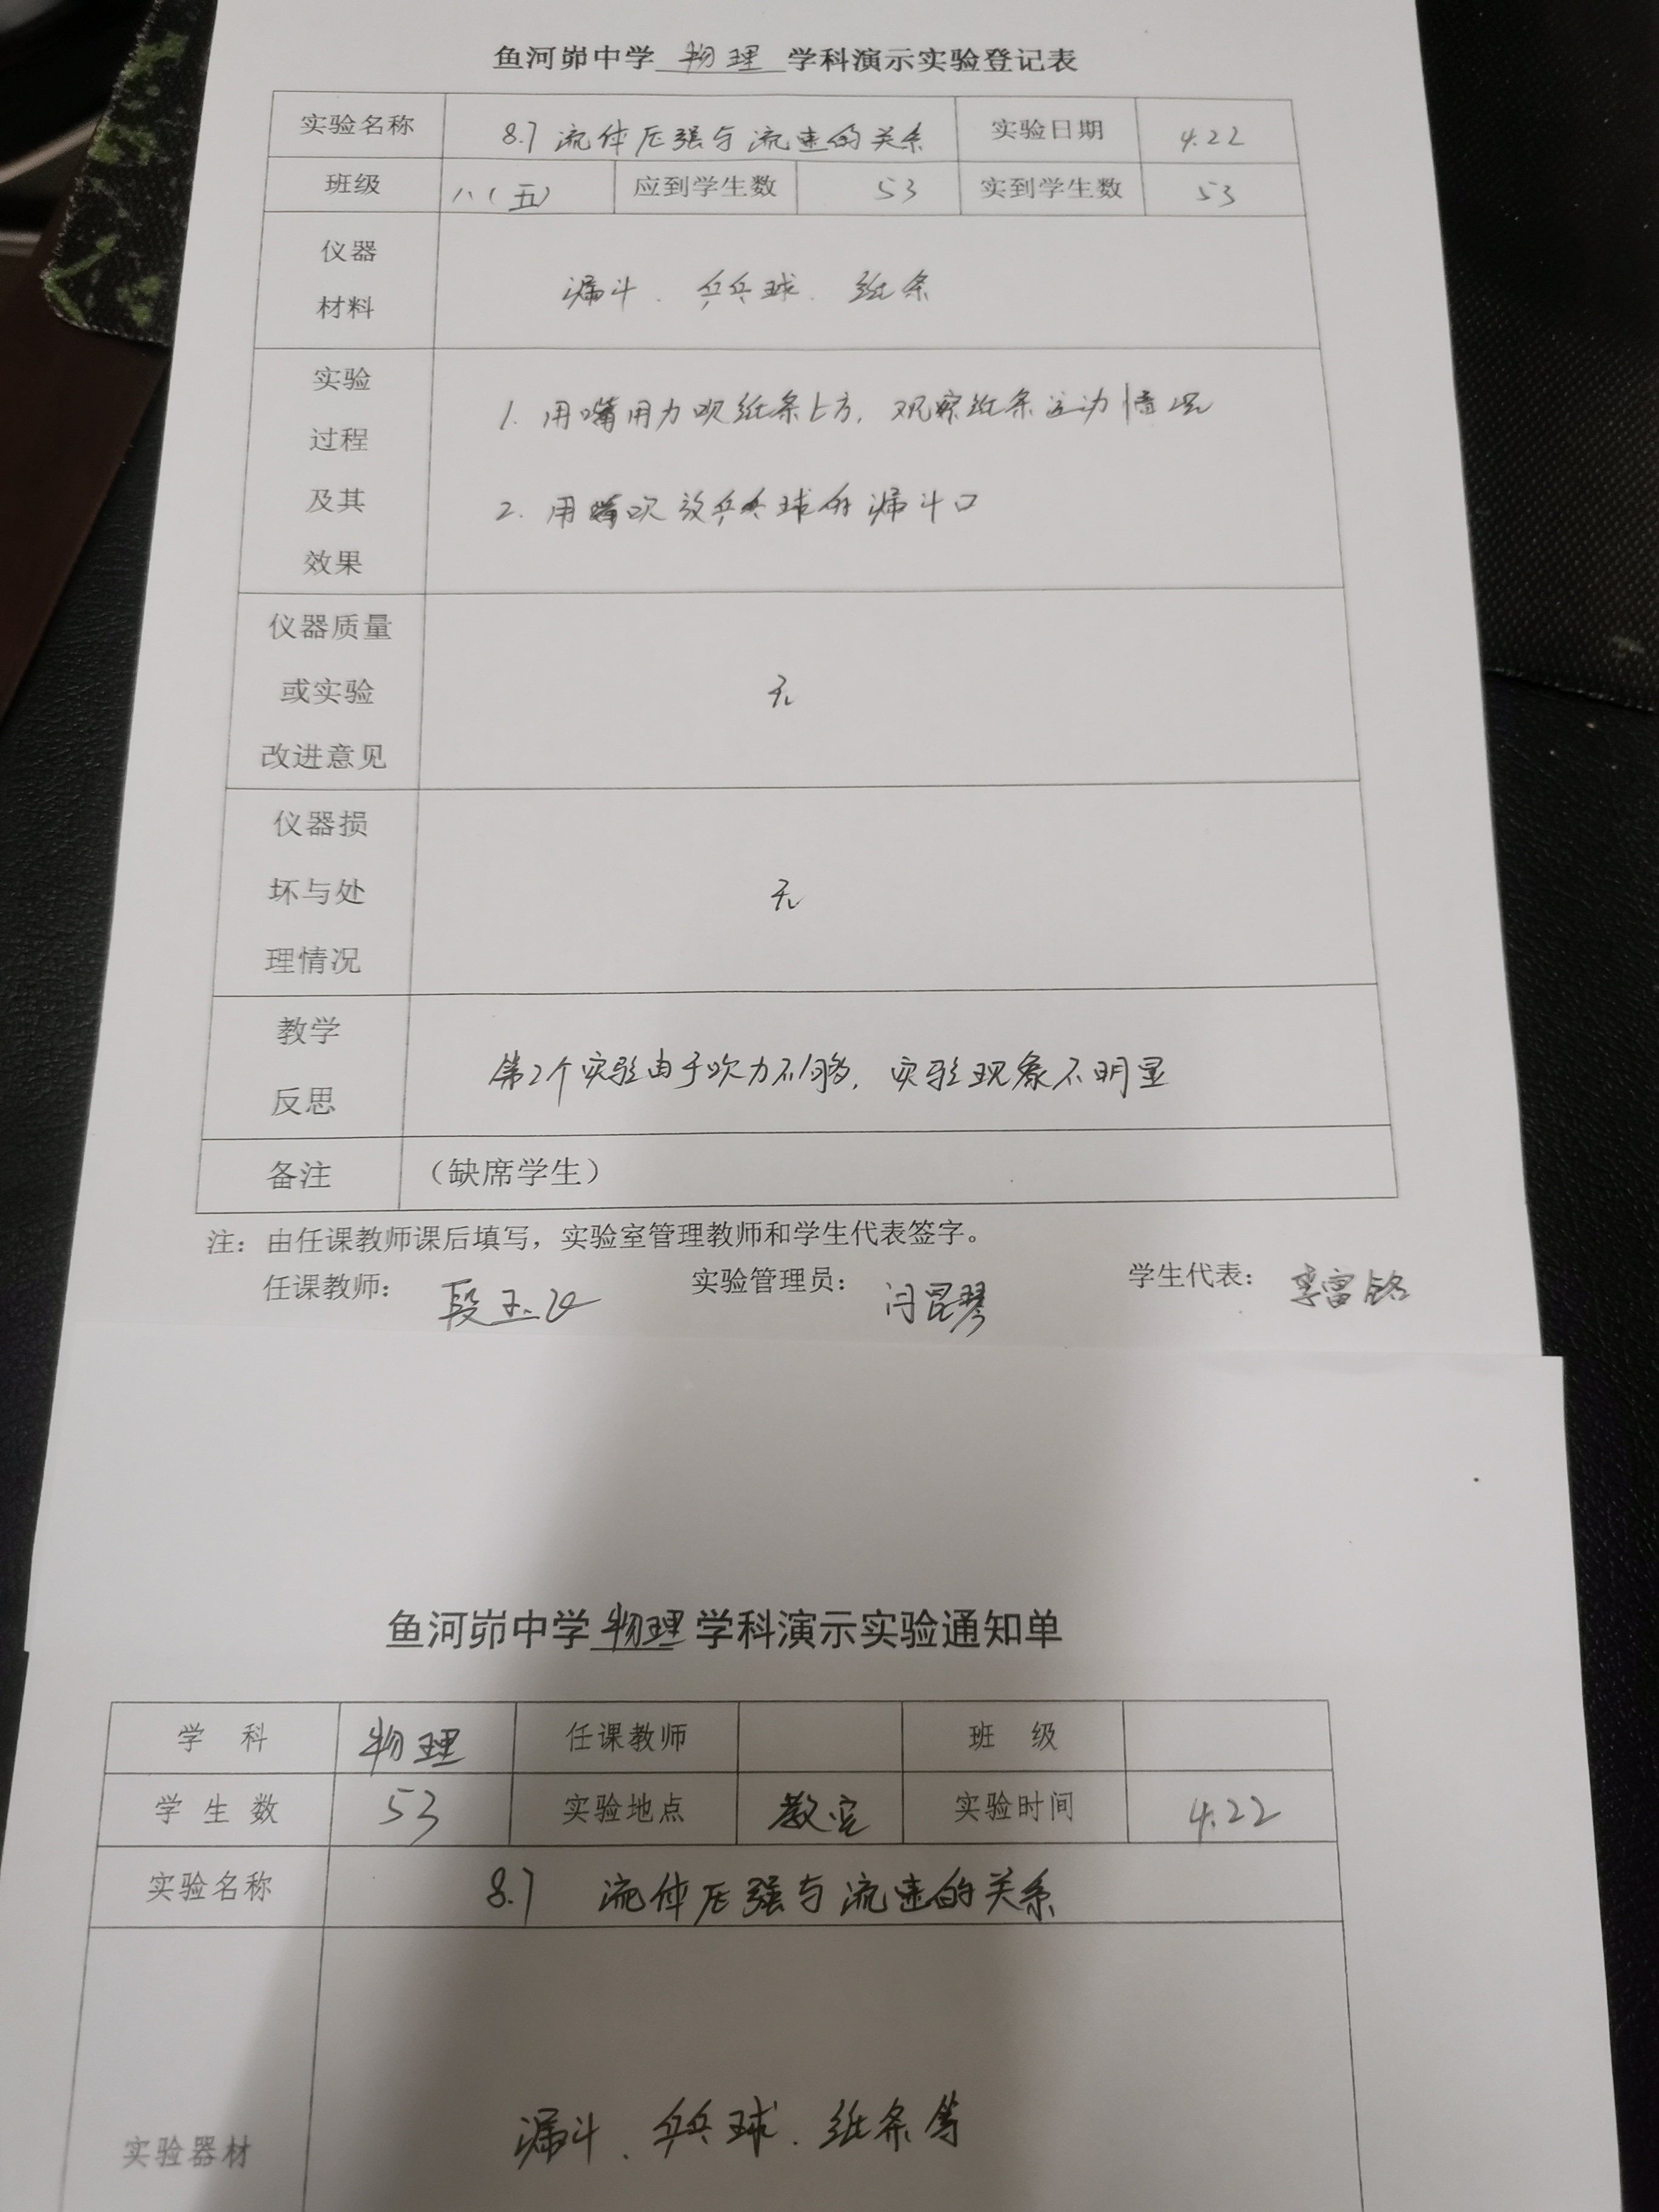 鱼河峁中学 物理 学科演示实验登记表
实验名称 8.7 流体压强与流速的关系 实验日期 4.22
班级 八(五) 应到学生数 53 实到学生数 53
仪器
材料
漏斗、乒乓球、纸条
实验
过程
及其
效果
1. 用嘴用力吹纸条上方，观察纸条运动情况
2. 用嘴吹放乒乓球的漏斗口
仪器质量
或实验
改进意见
无
仪器损
坏与处
理情况
无
教学
反思
第2个实验由于吹力不够，实验现象不明显
备注 （缺席学生）
注：由任课教师课后填写，实验室管理教师和学生代表签字。
任课教师： 段玉 实验管理员： 闫昆琴 学生代表： 李富铭
鱼河峁中学 物理 学科演示实验通知单
学 科 物理 任课教师 班 级
学 生 数 53 实验地点 教室 实验时间 4.22
实验名称 8.7 流体压强与流速的关系
实验器材 漏斗、乒乓球、纸条等